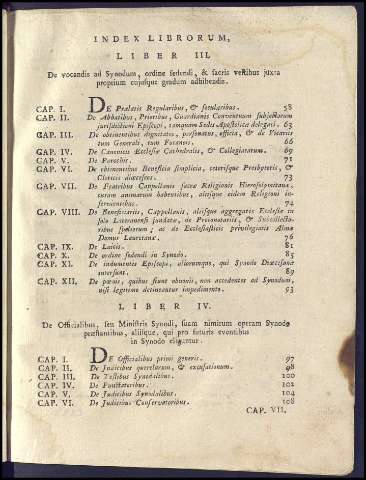 INDEX LIBRORUM,
LIBER III.
De vocandis ad Synodum, ordine sedendi, & sacris vestibus juxta
proprium cujusque gradum adhibendis.
CAP. I. DE Prælatis Regularibus, & secularibus. 58
CAP. II. De Abbatibus, Prioribus, Guardianis Conventuum subjectorum
jurisdictioni Episcopi, tamquam Sedis Apostolicæ delegati. 63
CAP. III. De obtinentibus dignitates, personatus, officia, & de Vicariis
tum Generali, tum Foraneis. 66
CAP. IV. De Canonicis Ecclesiæ Cathedralis, & Collegiatarum. 69
CAP. V. De Parochis. 71
CAP. VI. De obtinentibus Beneficia simplicia, ceterisque Presbyteris, &
Clericis diœcesees. 73
CAP. VII. De Fratribus Cappellanis sacræ Religionis Hierosolymitanæ,
curam animarum habentibus, aliisque eidem Religioni in-
servientibus. 74
CAP. VIII. De Beneficiariis, Cappellanis, aliisque aggregatis Ecclesiæ in
solo Lateranensi fundatæ, de Protonotariis, & Subcollecto-
ribus spoliorum; ac de Ecclesiasticis privilegiatis Almæ
Domus Lauretanæ. 76
CAP. IX. De Laicis. 81
CAP. X. De ordine sedendi in Synodo. 85
CAP. XI. De indumentis Episcopi, aliorumque, qui Synodo Diœcesanæ
intersunt. 89
CAP. XII. De pœnis, quibus fiunt obnoxii, non accedentes ad Synodum,
nisi legitimo detineantur impedimento. 93
LIBER IV.
De Officialibus, seu Ministris Synodi, suam nimirum operam Synodo
præstantibus, aliisque, qui pro futuris eventibus
in Synodo eliguntur.
CAP. I. DE Officialibus primi generis. 97
CAP. II. De Judicibus querelarum, & excusationum. 98
CAP. III. De Testibus Synodalibus. 100
CAP. IV. De Punctatoribus. 102
CAP. V. De Judicibus Synodalibus. 104
CAP. VI. De Judicibus Conservatoribus. 108
CAP. VII.